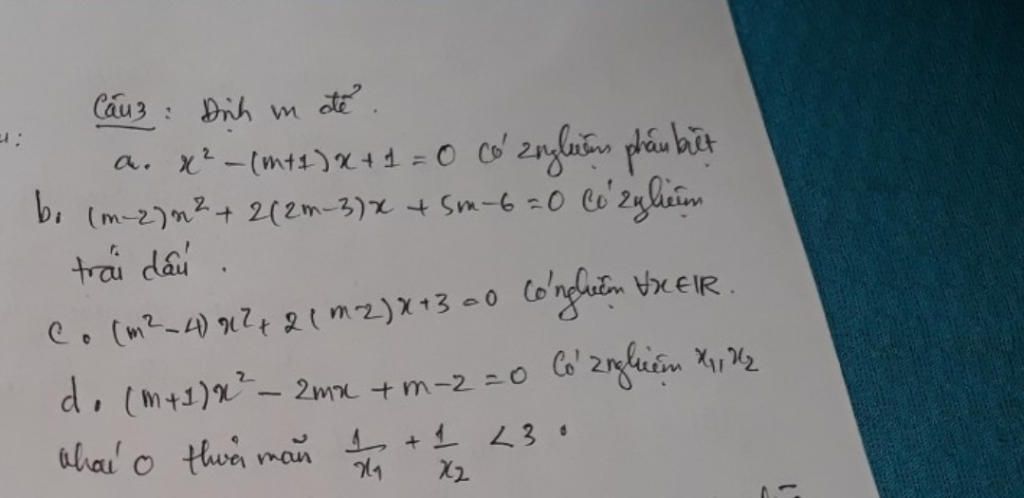 Câu 3 : Định m để.
a. x² - (m+1)x + 1 = 0 có 2 nghiệm phân biệt
b. (m-2)x² + 2(2m-3)x + 5m-6 = 0 có 2 nghiệm
trái dấu.
c. (m²-4)x² + 2(m-2)x + 3 = 0 có nghiệm ∀x∈ℝ.
d. (m+1)x² - 2mx + m-2 = 0 có 2 nghiệm x₁, x₂
khác 0 thỏa mãn 1/x₁ + 1/x₂ < 3.